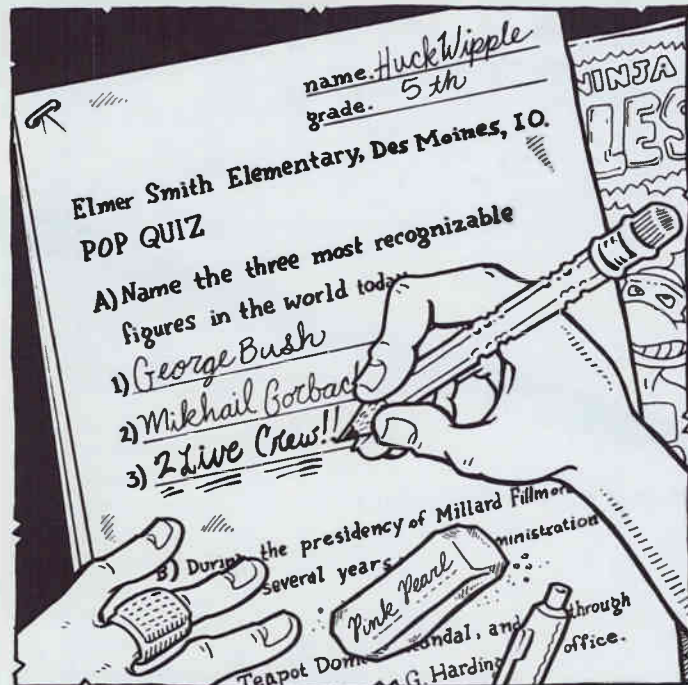 name. Huck Wipple
grade. 5th
NINJA
Elmer Smith Elementary, Des Moines, IO.
POP QUIZ
A) Name the three most recognizable
figures in the world today
1) George Bush
2) Mikhail Gorbach
3) 2 Live Crew!!
B) During the presidency of Millard Fillmore
several years ministration
Pink Pearl
Teapot Dome andal, and through
G. Harding office.